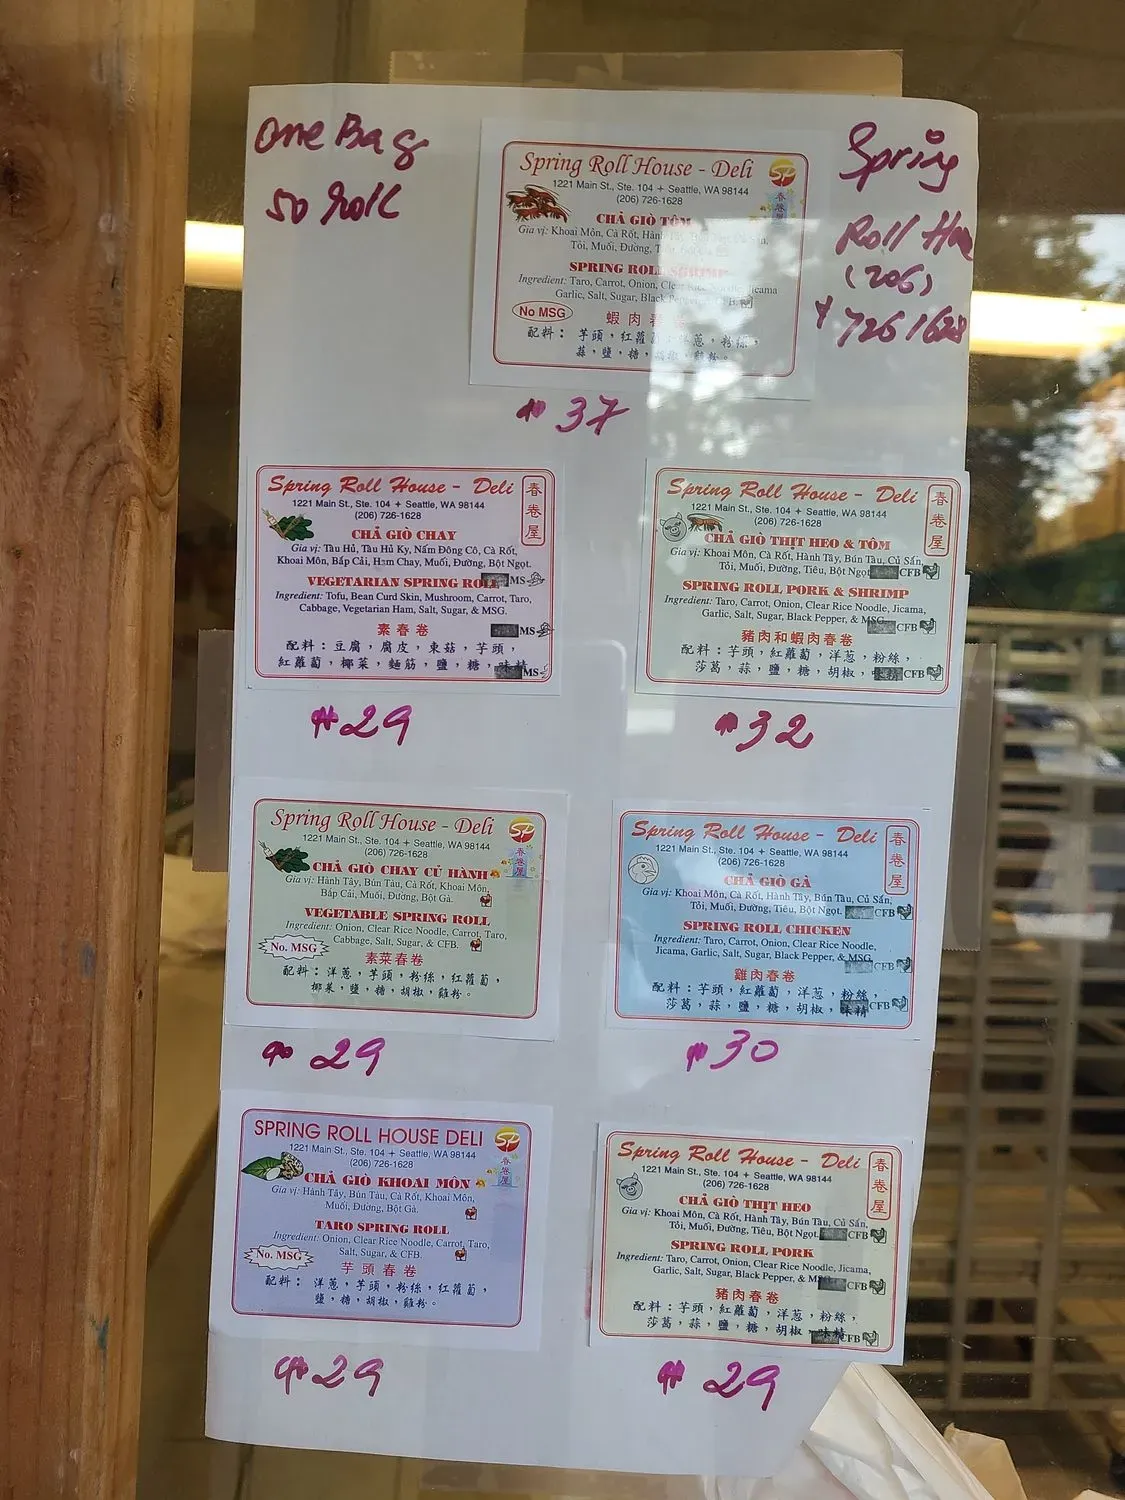 One Bag
50 Roll
Spring
Roll House
(206)
7261628
Spring Roll House - Deli
SP
春卷屋
1221 Main St., Ste. 104 + Seattle, WA 98144
(206) 726-1628
CHẢ GIÒ TÔM
Gia vị: Khoai Môn, Cà Rốt, Hành Tây,
Tỏi, Muối, Đường,
SPRING ROLL SHRIMP
Ingredient: Taro, Carrot, Onion, Clear Rice Noodle, Jicama
Garlic, Salt, Sugar, Black Pepper, & CFB
No MSG
蝦肉春卷
配料： 芋頭，紅蘿蔔，洋蔥，粉絲，
蒜，鹽，糖，胡椒，雞粉。
$37
Spring Roll House - Deli
春卷屋
1221 Main St., Ste. 104 + Seattle, WA 98144
(206) 726-1628
CHẢ GIÒ CHAY
Gia vị: Tàu Hủ, Tàu Hủ Ky, Nấm Đông Cô, Cà Rốt,
Khoai Môn, Bắp Cải, Ham Chay, Muối, Đường, Bột Ngọt.
VEGETARIAN SPRING ROLL MS
Ingredient: Tofu, Bean Curd Skin, Mushroom, Carrot, Taro,
Cabbage, Vegetarian Ham, Salt, Sugar, & MSG.
素春卷 MS
配料：豆腐，腐皮，東菇，芋頭，
紅蘿蔔，椰菜，麵筋，鹽，糖，味精 MS
$29
Spring Roll House - Deli
春卷屋
1221 Main St., Ste. 104 + Seattle, WA 98144
(206) 726-1628
CHẢ GIÒ THỊT HEO & TÔM
Gia vị: Khoai Môn, Cà Rốt, Hành Tây, Bún Tàu, Củ Sắn,
Tỏi, Muối, Đường, Tiêu, Bột Ngọt CFB
SPRING ROLL PORK & SHRIMP
Ingredient: Taro, Carrot, Onion, Clear Rice Noodle, Jicama,
Garlic, Salt, Sugar, Black Pepper, & MSG CFB
豬肉和蝦肉春卷
配料：芋頭，紅蘿蔔，洋蔥，粉絲，
莎葛，蒜，鹽，糖，胡椒， CFB
$32
Spring Roll House - Deli
SP
春卷屋
1221 Main St., Ste. 104 + Seattle, WA 98144
(206) 726-1628
CHẢ GIÒ CHAY CỦ HÀNH
Gia vị: Hành Tây, Bún Tàu, Cà Rốt, Khoai Môn,
Bắp Cải, Muối, Đường, Bột Gà.
VEGETABLE SPRING ROLL
Ingredient: Onion, Clear Rice Noodle, Carrot, Taro,
Cabbage, Salt, Sugar, & CFB.
No. MSG
素菜春卷
配料：洋蔥，芋頭，粉絲，紅蘿蔔，
椰菜，鹽，糖，胡椒，雞粉。
$29
Spring Roll House - Deli
春卷屋
1221 Main St., Ste. 104 + Seattle, WA 98144
(206) 726-1628
CHẢ GIÒ GÀ
Gia vị: Khoai Môn, Cà Rốt, Hành Tây, Bún Tàu, Củ Sắn,
Tỏi, Muối, Đường, Tiêu, Bột Ngọt CFB
SPRING ROLL CHICKEN
Ingredient: Taro, Carrot, Onion, Clear Rice Noodle,
Jicama, Garlic, Salt, Sugar, Black Pepper, & MSG CFB
雞肉春卷
配料：芋頭，紅蘿蔔，洋蔥，粉絲，
莎葛，蒜，鹽，糖，胡椒，味精 CFB
$30
SPRING ROLL HOUSE DELI
SP
春卷屋
1221 Main St., Ste. 104 + Seattle, WA 98144
(206) 726-1628
CHẢ GIÒ KHOAI MÔN
Gia vị: Hành Tây, Bún Tàu, Cà Rốt, Khoai Môn,
Muối, Đường, Bột Gà.
TARO SPRING ROLL
Ingredient: Onion, Clear Rice Noodle, Carrot, Taro,
Salt, Sugar, & CFB.
No. MSG
芋頭春卷
配料： 洋蔥，芋頭，粉絲，紅蘿蔔，
鹽，糖，胡椒，雞粉。
$29
Spring Roll House - Deli
春卷屋
1221 Main St., Ste. 104 + Seattle, WA 98144
(206) 726-1628
CHẢ GIÒ THỊT HEO
Gia vị: Khoai Môn, Cà Rốt, Hành Tây, Bún Tàu, Củ Sắn,
Tỏi, Muối, Đường, Tiêu, Bột Ngọt CFB
SPRING ROLL PORK
Ingredient: Taro, Carrot, Onion, Clear Rice Noodle, Jicama,
Garlic, Salt, Sugar, Black Pepper, & CFB
豬肉春卷
配料：芋頭，紅蘿蔔，洋蔥，粉絲，
莎葛，蒜，鹽，糖，胡椒，味精 CFB
$29